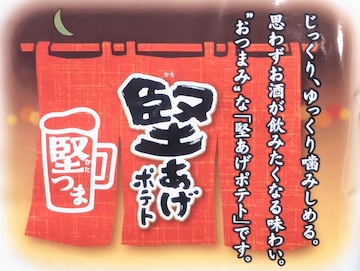 じっくり、ゆっくり噛みしめる。
思わずお酒が飲みたくなる味わい。
"おつまみ"な「堅あげポテト」です。
堅あげ
かた
ポテト
堅つま
かた